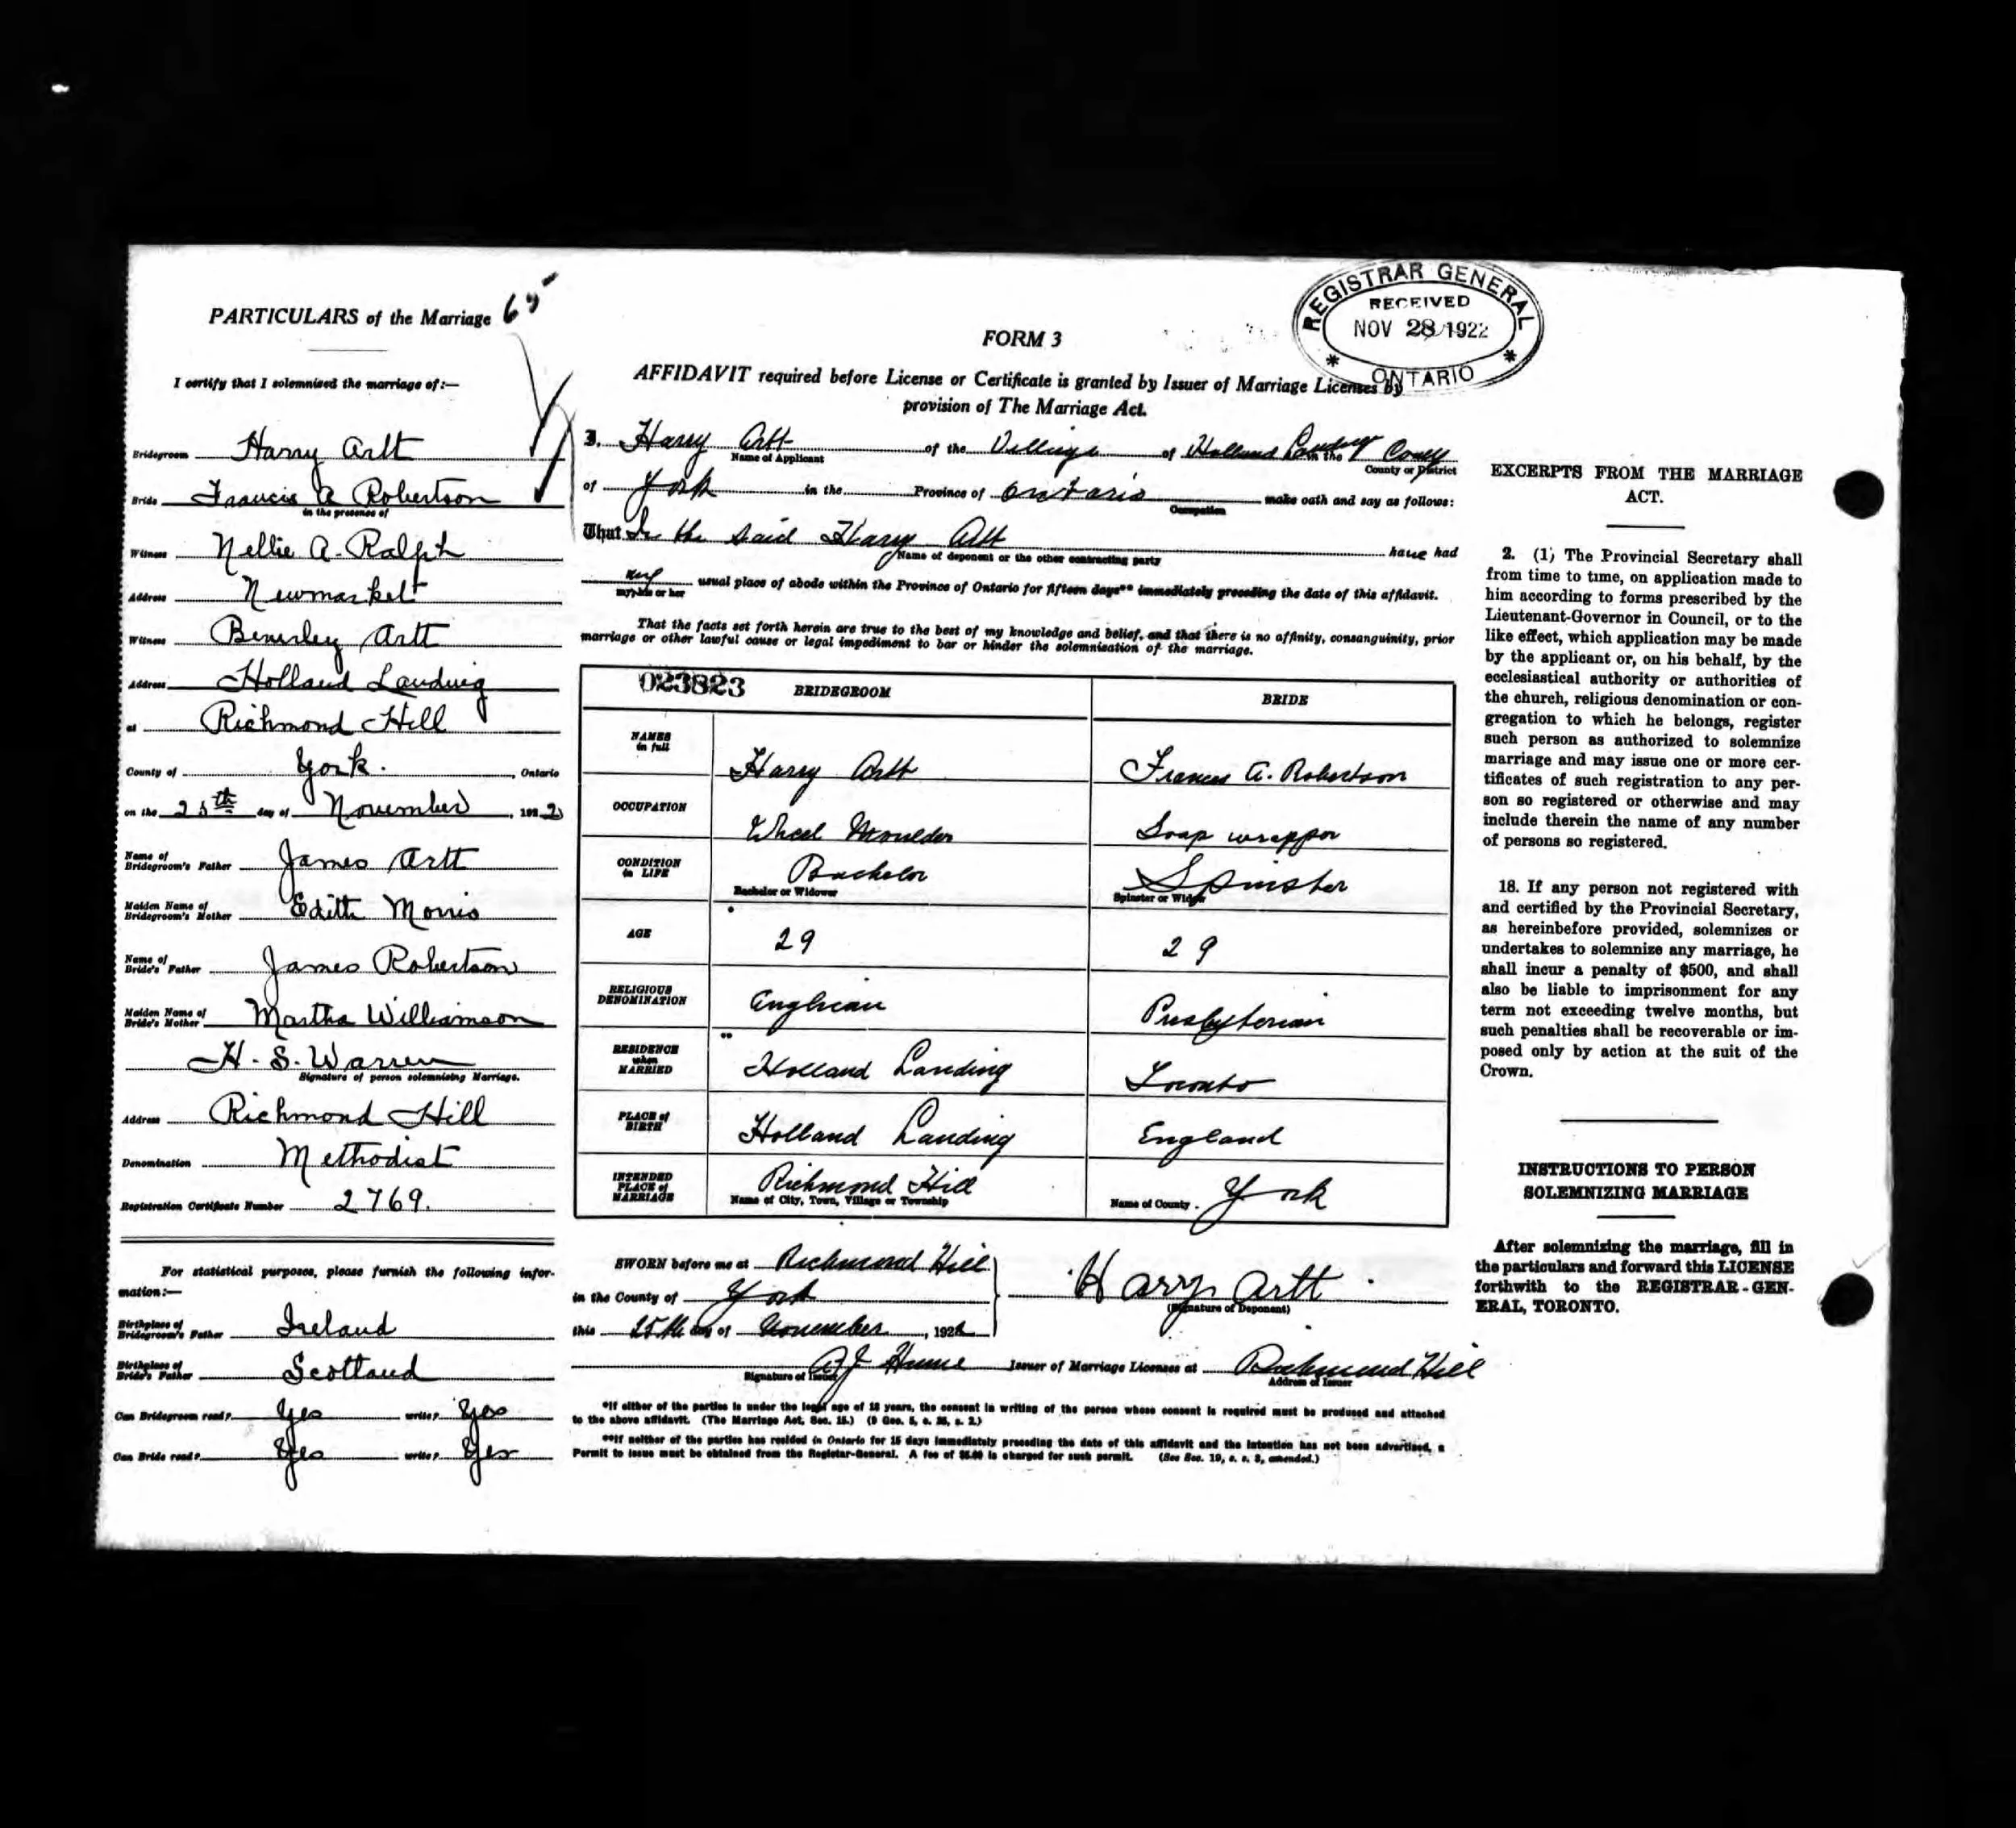 PARTICULARS of the Marriage 65
I certify that I solemnized the marriage of:—
Bridegroom Harry Artt
Bride Francis A Robertson
in the presence of
Witness Nellie A. Ralph
Address Newmarket
Witness Beverley Artt
Address Holland Landing
at Richmond Hill
County of York. , Ontario
on the 25th day of November , 1922
Name of Bridegroom's Father James Artt
Maiden Name of Bridegroom's Mother Edith Morris
Name of Bride's Father James Robertson
Maiden Name of Bride's Mother Martha Williamson
H. S. Warren
Signature of person solemnizing Marriage.
Address Richmond Hill
Denomination Methodist
Registration Certificate Number 2769.
For statistical purposes, please furnish the following infor-
mation:—
Birthplace of Bridegroom's Father Ireland
Birthplace of Bride's Father Scotland
Can Bridegroom read? Yes write? Yes
Can Bride read? Yes write? Yes
REGISTRAR GENERAL
RECEIVED
NOV 28 1922
ONTARIO
FORM 3
AFFIDAVIT required before License or Certificate is granted by Issuer of Marriage Licenses by
provision of The Marriage Act.
I, Harry Artt of the Village of Holland Landing in the County
Name of Applicant County or District
of York in the Province of Ontario make oath and say as follows:
Occupation
That I the said Harry Artt have had
Name of deponent or the other contracting party
my usual place of abode within the Province of Ontario for fifteen days** immediately preceding the date of this affidavit.
my, his or her
That the facts set forth herein are true to the best of my knowledge and belief, and that there is no affinity, consanguinity, prior
marriage or other lawful cause or legal impediment to bar or hinder the solemnization of the marriage.
023823 BRIDEGROOM BRIDE
NAMES in full Harry Artt Frances A. Robertson
OCCUPATION Wheel Moulder Soap wrapper
CONDITION in LIFE Bachelor Spinster
Bachelor or Widower Spinster or Widow
AGE 29 29
RELIGIOUS DENOMINATION Anglican Presbyterian
RESIDENCE when MARRIED Holland Landing Toronto
PLACE of BIRTH Holland Landing England
INTENDED PLACE of MARRIAGE Richmond Hill York
Name of City, Town, Village or Township Name of County
SWORN before me at Richmond Hill
in the County of York
this 25th day of November , 1922
Harry Artt
(Signature of Deponent)
A J Hume Issuer of Marriage Licenses at Richmond Hill
Signature of Issuer Address of Issuer
*If either of the parties is under the legal age of 18 years, the consent in writing of the person whose consent is required must be produced and attached
to the above affidavit. (The Marriage Act, Sec. 15.) (9 Geo. 5, c. 35, s. 2.)
**If neither of the parties has resided in Ontario for 15 days immediately preceding the date of this affidavit and the intention has not been advertised, a
Permit to issue must be obtained from the Registrar-General. A fee of $5.00 is charged for such permit. (See Sec. 19, s. s. 3, amended.)
EXCERPTS FROM THE MARRIAGE
ACT.
2. (1) The Provincial Secretary shall
from time to time, on application made to
him according to forms prescribed by the
Lieutenant-Governor in Council, or to the
like effect, which application may be made
by the applicant or, on his behalf, by the
ecclesiastical authority or authorities of
the church, religious denomination or con-
gregation to which he belongs, register
such person as authorized to solemnize
marriage and may issue one or more cer-
tificates of such registration to any per-
son so registered or otherwise and may
include therein the name of any number
of persons so registered.
18. If any person not registered with
and certified by the Provincial Secretary,
as hereinbefore provided, solemnizes or
undertakes to solemnize any marriage, he
shall incur a penalty of $500, and shall
also be liable to imprisonment for any
term not exceeding twelve months, but
such penalties shall be recoverable or im-
posed only by action at the suit of the
Crown.
INSTRUCTIONS TO PERSON
SOLEMNIZING MARRIAGE
After solemnizing the marriage, fill in
the particulars and forward this LICENSE
forthwith to the REGISTRAR-GEN-
ERAL, TORONTO.